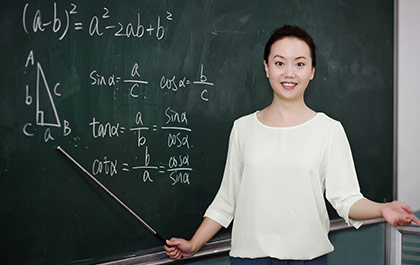 (a-b)²=a²-2ab+b²
A
b c
C a B
sinα=a/c cosα=b/c
tanα=a/b=sinα/cosα
cotα=b/a=cosα/sinα